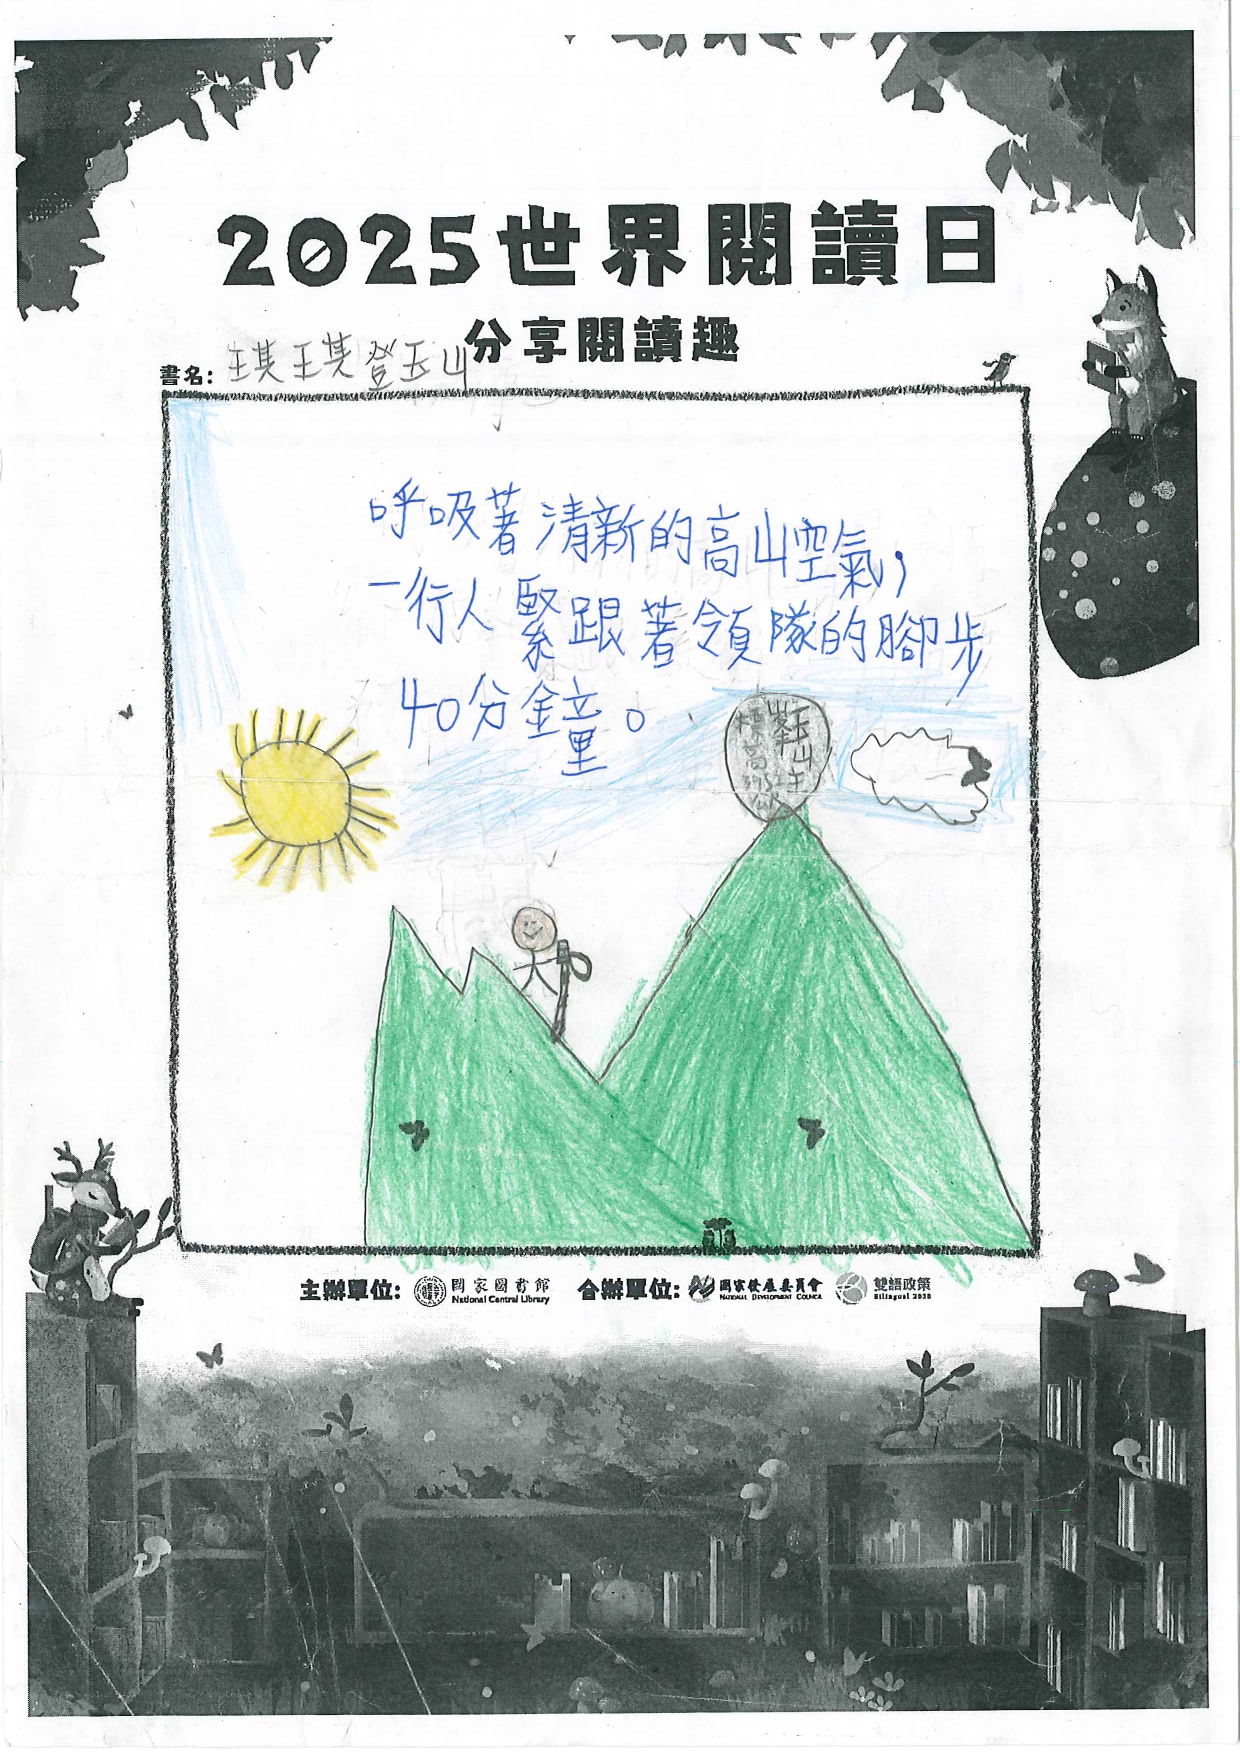 2025世界閱讀日
分享閱讀趣
書名：琪琪登玉山
呼吸著清新的高山空氣，
一行人緊跟著領隊的腳步
40分鐘。
玉山主
峯
標高
主辦單位：國家圖書館 National Central Library 合辦單位：國家發展委員會 National Development Council 雙語政策 Bilingual 2030